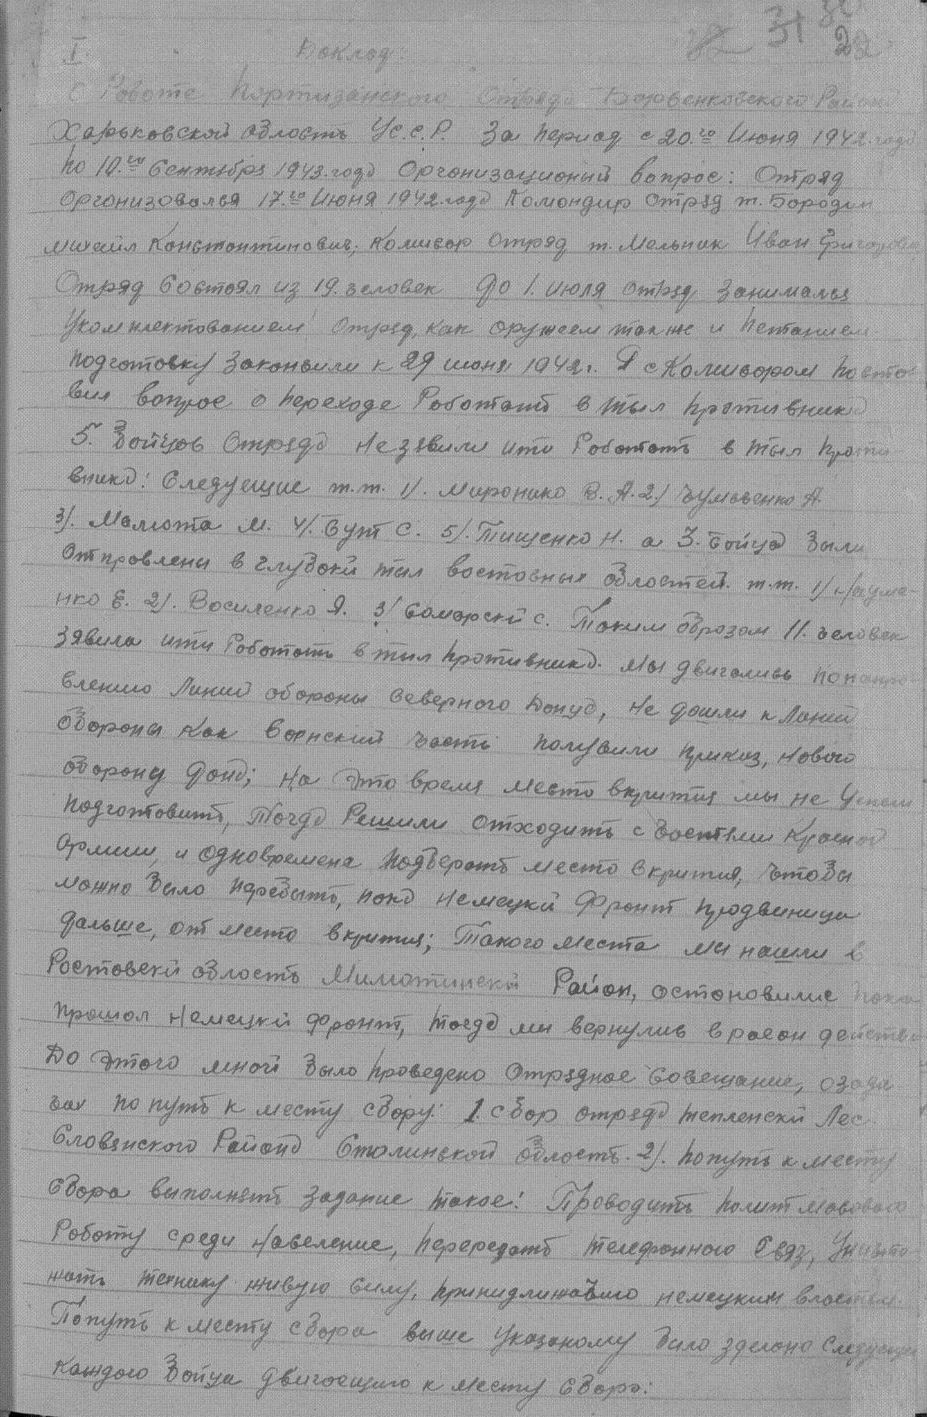 31 30
22
I.
Доклад:
о Работе Партизанского Отряда Барвенковского Района
Харьковской область Ус.с.Р. За период с 20.го Июня 1942. года
по 10.го Сентября 1943. года Организационый вопрос: Отряд
Организовался 17.го Июня 1942 года Командир отряд т. Бородин
михаил Константинович, Комисар отряд т. Мельник Иван Григорови
Отряд Состоял из 19. человек До 1. июля отряд занимался
Укомплектованием отряд, как оружием также и питанием
подготовку закончили к 29 июня 1942 г. Я с Комисаром поста-
вил вопрос о переходе Работать в тыл противника
5. Бойцов Отряда не зявили ити Работать в тыл проти-
вника: Следуещие т.т. 1/. Миронико В. А. 2/ Чумаченко А
3/. Мамота М. 4/. Бут С. 5/. Тищенко Н. а 3. бойца были
отправлены в глубоки тыл восточных областей. т.т. 1/ Науме-
нко Е. 2/. Василенко Я. 3/ Самарский С. Таким образом 11. человек
зявила ити Работать в тыл противника. Мы двигались по напра-
влению Линий обороны Северного Донца, не дошли к Линий
обороны как воинский часть получили приказ, нового
оборону Дона; на это время место вкрития мы не успели
подготовить, Тогда Решили отходить с частями Красной
Армии, и одновремена подберать место вкрития, чтобы
можно было перебыть, пока немецкй фронт продвиница
дальше, от место вкрития; Такого места мы нашли в
Ростовскй область Милютинскй Район, остановилис пока
прошол немецкй фронт, тогда мы вернулис в раеон действи
До этого мной было проведено отрядное Совещание, о зада-
чах по путь к месту сбору: 1. сбор отряда тепленски Лес
Словянского Района Сталинской область. 2/. по путь к месту
сбора выполнять задание такое: Проводить полит масовою
Роботу среди население, перередать телефонного Связ, Уничто-
жать технику живую силу, принидлижавшо немецким властям.
По путь к месту сбора више указаному било зделано следующе
Каждого Бойца двигаещиго к месту Сбора: